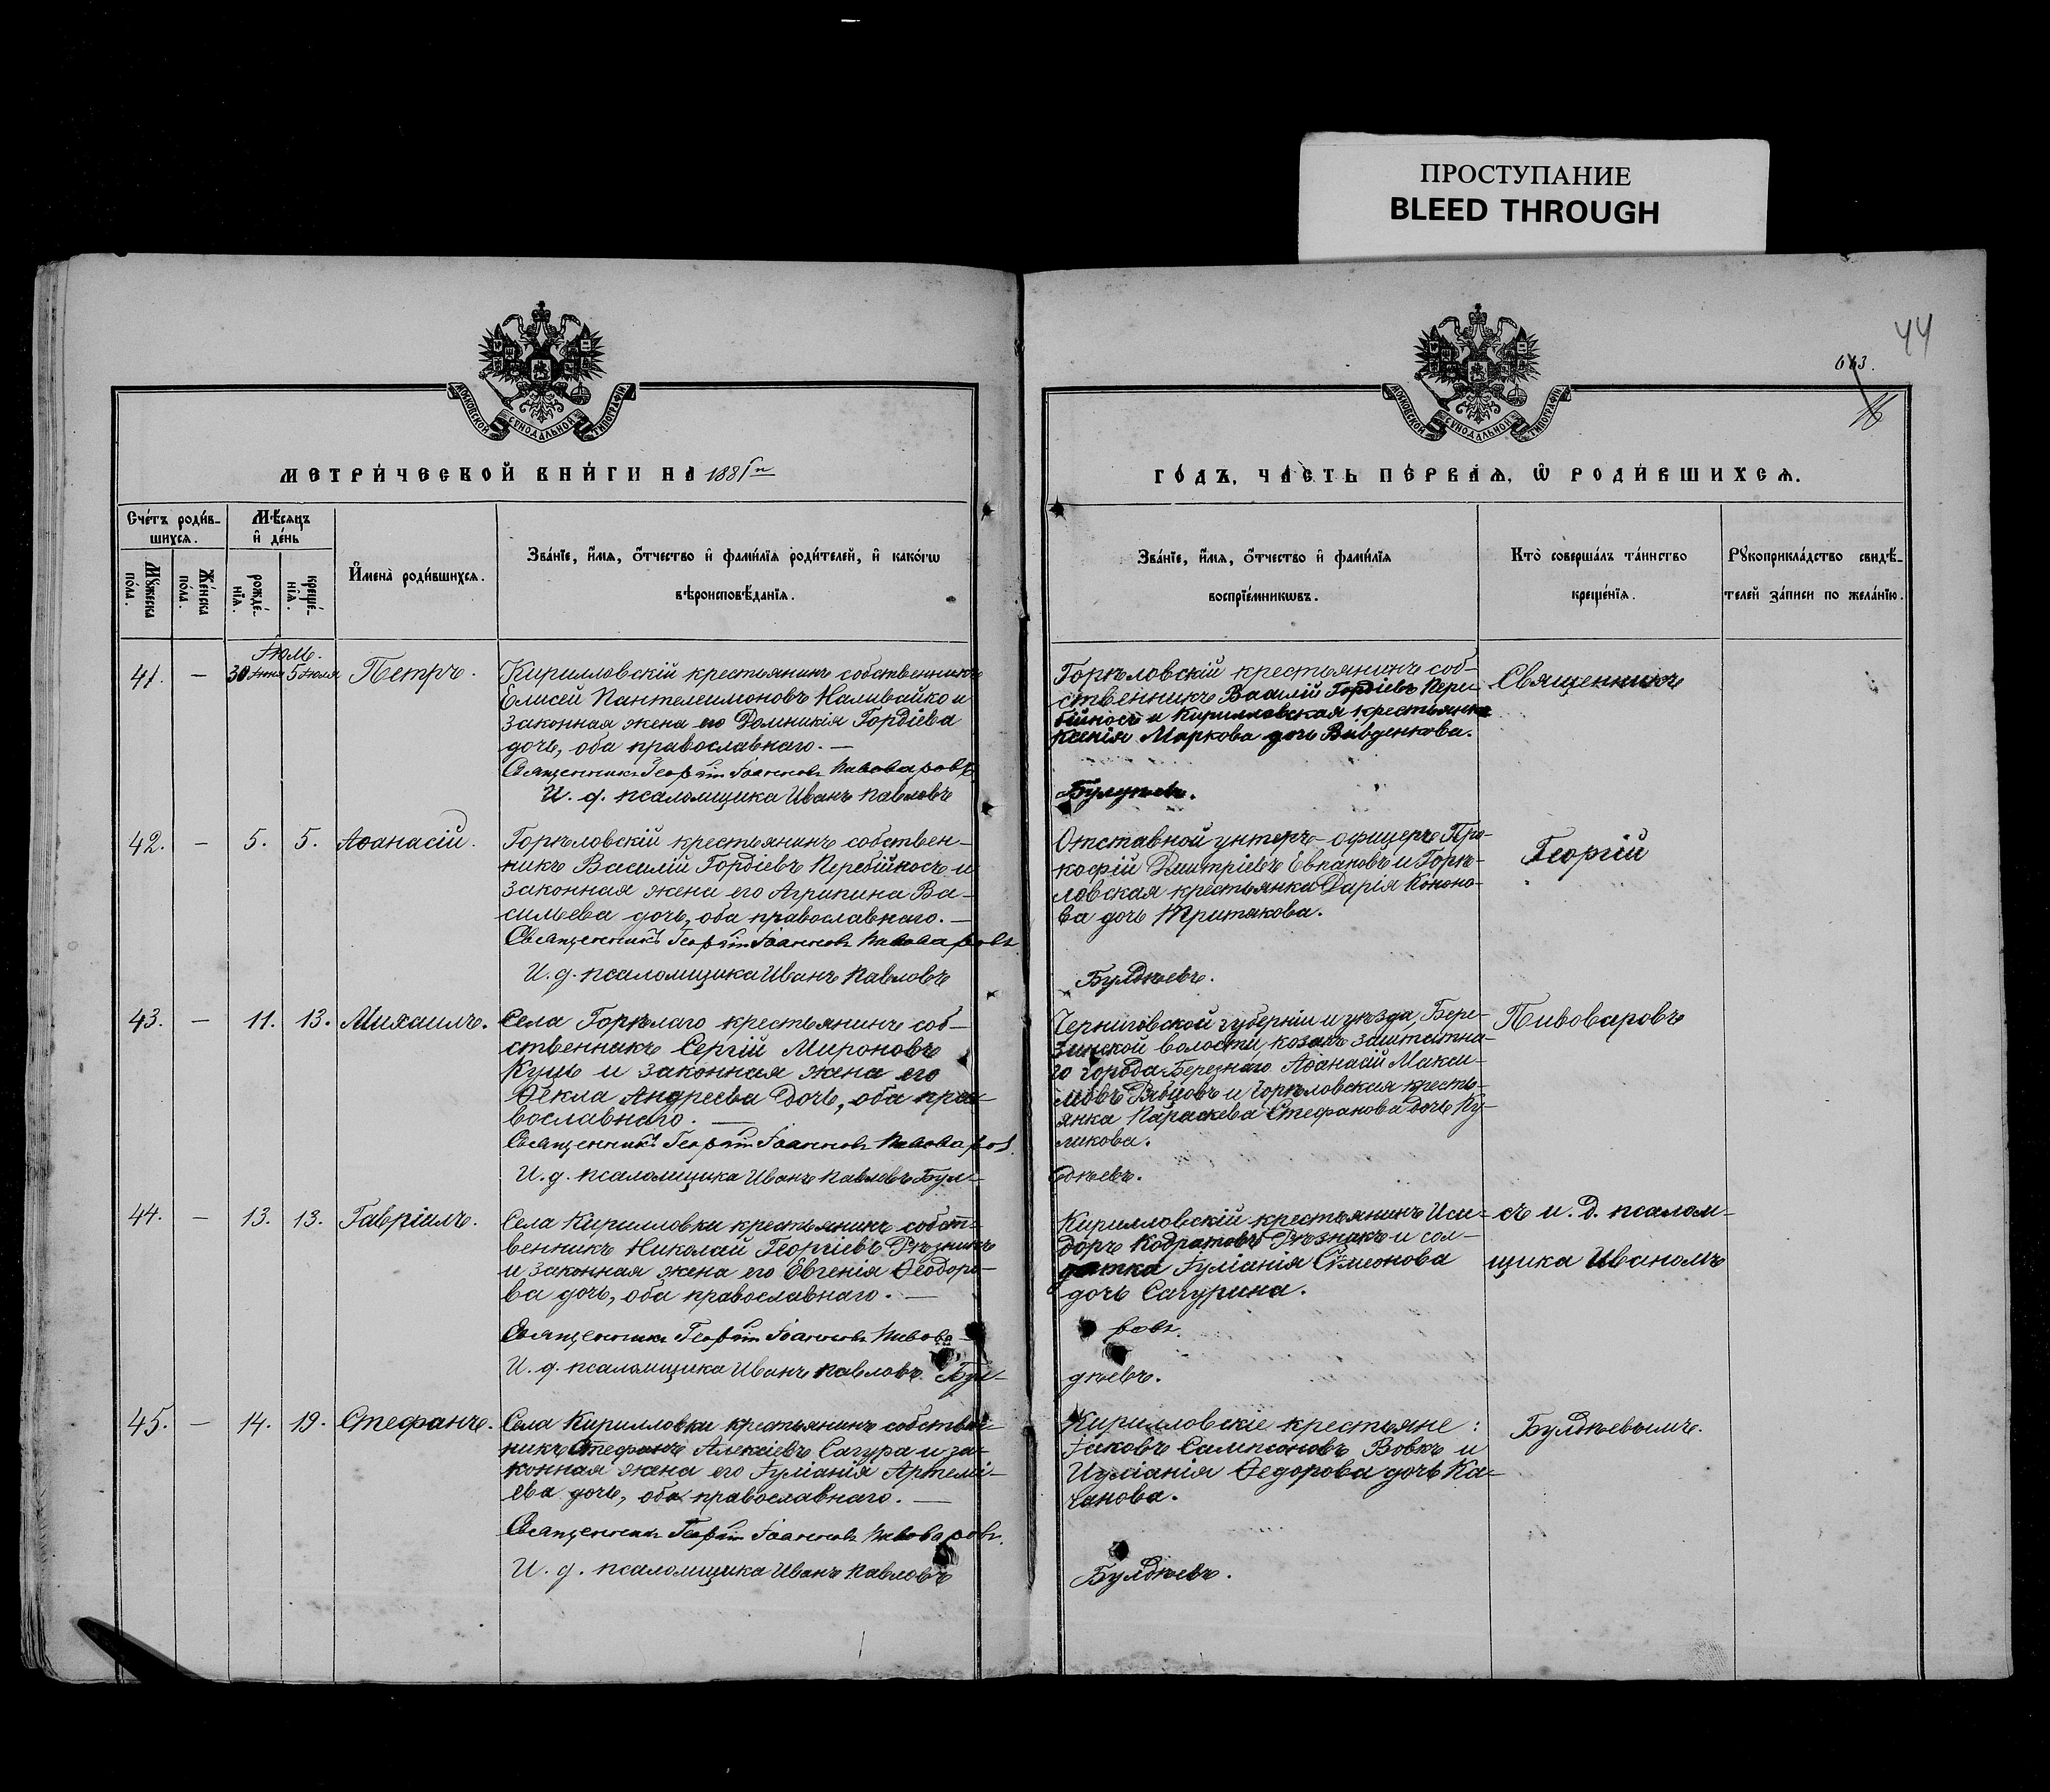 ПРОСТУПАНИЕ
BLEED THROUGH
44
663.
16
МОСКОВСКОЙ СѴНОДАЛЬНОЙ ТИПОГРАФІИ
МОСКОВСКОЙ СѴНОДАЛЬНОЙ ТИПОГРАФІИ
МЕТРИ́ЧЕСКОЙ КНИ́ГИ НА 1881й
ГО́ДЪ, ЧА́СТЬ ПЕ́РВАЯ, Ѡ РОДИ́ВШИХСЯ.
Сче́тъ роди́в-
шихся.
Мꙋ́жеска по́ла.
Же́нска по́ла.
Мѣ́сяцъ
и҆ де́нь
рожде́-
нїя.
креще́-
нїя.
И҆мена̀ роди́вшихся.
Зва́нїе, и҆́мя, ѻ҆́тчество и҆ фами́лїя роди́телей, и҆ како́гѡ
вѣроисповѣ́данїя.
Зва́нїе, и҆́мя, ѻ҆́тчество и҆ фами́лїя
воспрїе́мникѡвъ.
Кто̀ соверша́лъ та́инство
креще́нїя.
Рꙋкоприкла́дство свидѣ́-
телей за́писи по жела́нїю.
Іюль.
41. — 30 Іюня 5 Іюля Петръ.
Кирилловскій крестьянинъ собственникъ
Елисей Пантелеимоновъ Наливайко и
законная жена его Домникія Гордіева
дочь, оба православнаго. —
Священникъ Георгій Іоанновъ Пивоваровъ
И. д. псаломщика Иванъ Павловъ
Горѣловскій крестьянинъ соб-
ственникъ Василій Гордіевъ Пере-
бійносъ и Кирилловская крестьянка
Ксенія Маркова дочь Вивденкова.
Священникъ
42. — 5. 5. Аѳанасій.
Горѣловскій крестьянинъ собствен-
никъ Василій Гордіевъ Перебійносъ и
законная жена его Агрипина Ва-
сильева дочь, оба православнаго. —
Священникъ Георгій Іоанновъ Пивоваровъ
И. д. псаломщика Иванъ Павловъ
Отставной унтеръ-офицеръ Про-
кофій Дмитріевъ Евпаковъ и Горѣ-
ловская крестьянка Дарія Конно-
ва дочь Притякова.
Булдѣевъ.
Георгій
43. — 11. 13. Михаилъ.
Села Горѣлаго крестьянинъ соб-
ственникъ Сергій Мироновъ
Куць и законная жена его
Ѳекла Андреева дочь, оба пра-
вославнаго. —
Священникъ Георгій Іоанновъ Пивоваров.
И. д. псаломщика Иванъ Павловъ Бул-
Черниговской губерніи и уѣзда, Бере-
зинской волости, козакъ заштатна-
го города Березнаго Аѳанасій Макси-
мовъ Рябцовъ и Горѣловская кресть-
янка Параскева Стефанова дочь Ку-
ликова.
дѣевъ.
Пивоваровъ
44. — 13. 13. Гавріилъ.
Села Кирилловки крестьянинъ собст-
венникъ Николай Георгіевъ Рѣзникъ
и законная жена его Евгенія Ѳеодоро-
ва дочь, оба православнаго. —
Священникъ Георгій Іоанновъ Пивова-
И. д. псаломщика Иванъ Павловъ Бул-
Кирилловскій крестьянинъ Иси-
доръ Кодратовъ Рѣзникъ и сол-
датка Іуліанія Сѵмеонова
дочь Сагурина.
ровъ.
дѣевъ.
съ и. д. псалом-
щика Иваномъ
45. — 14. 19. Стефанъ.
Села Кирилловки крестьянинъ собствен-
никъ Стефанъ Алексіевъ Сагура и за-
конная жена его Іуліанія Артемі-
ева дочь, оба православнаго. —
Священникъ Георгій Іоанновъ Пивоваровъ.
И. д. псаломщика Иванъ Павловъ
Кирилловскіе крестьяне:
Іаковъ Сампсоновъ Вовкъ и
Иуліанія Ѳедорова дочь Ка-
чанова.
Булдѣевъ.
Булдѣевымъ.